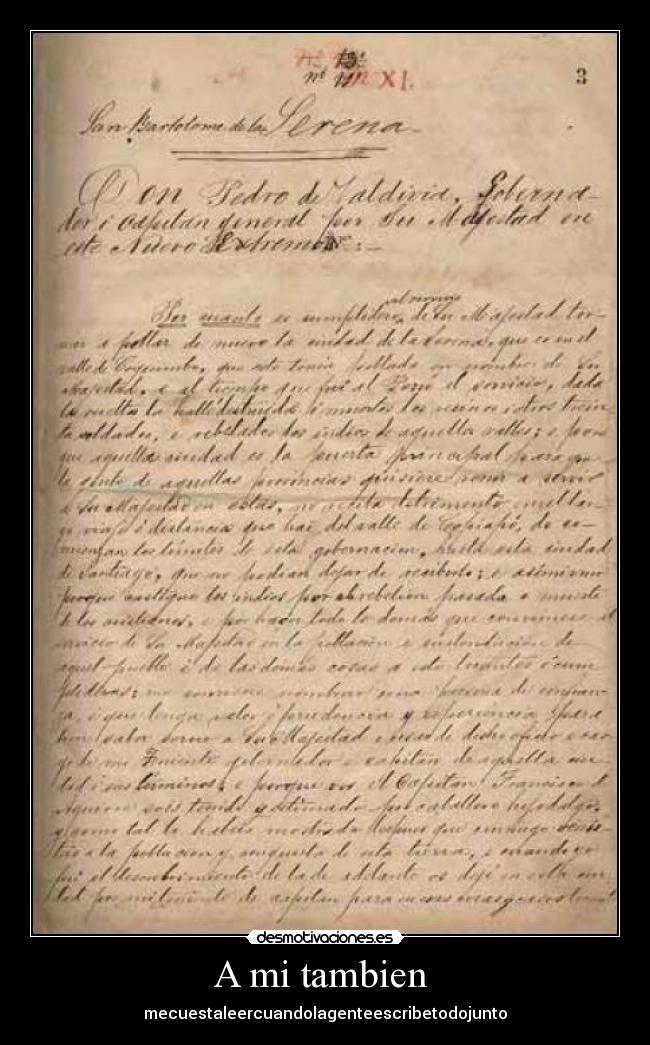 Nº 13º
nº 11 XI.
3
San Bartolome de la Serena
Don Pedro de Valdivia, Goberna-
dor i capitan general por Su Majestad en
este Nuevo Extremo:
Por cuanto es cumplidero de Su Majestad tor-
nar a poblar de nuevo la ciudad de la Serena, que es en el
valle de Coquimbo, que este tenia poblada en nombre de Su
Majestad, e al tiempo que fui al Perú el servicio, dada
la vuelta la hallé destruida i muertos los vecinos i otros trein-
ta soldados, e rebelados los indios de aquellos valles; e por
que aquella ciudad es la puerta principal para que
la gente de aquellas provincias quisiere venir a servir
a Su Majestad en estas, no reciba detrimento en el lar-
go viaje i distancia que hai del valle de Copiapó, do co-
mienzan los límites de esta gobernacion, hasta esta ciudad
de Santiago, que no podian dejar de recibirlo; e asimismo
porque castigue los indios por la rebelion pasada e muerte
de los cristianos, e por hacer todo lo demás que conviniere al
servicio de Su Majestad en la poblacion e sustentacion de
aquel pueblo e de las demás cosas a esto tocantes
me conviene nombrar una persona de confian-
za, e que tenga valor i prudencia y esperiencia para
saber servir a Su Majestad
de mi Teniente gobernador e capitan de aquella ciu-
dad i sus términos; e porque vos el Capitan Francisco de
Aguirre sois tenido y estimado por caballero hijodalgo,
y como tal lo habeis mostrado despues que conmigo venis-
tes a la poblacion y conquista de esta tierra, e cuando yo
fui al descubrimiento de la de adelante os dejé en esta ciu-
dad por mi teniente de capitan para
desmotivaciones.es
A mi tambien
mecuestaleercuandolagenteescribetodojunto